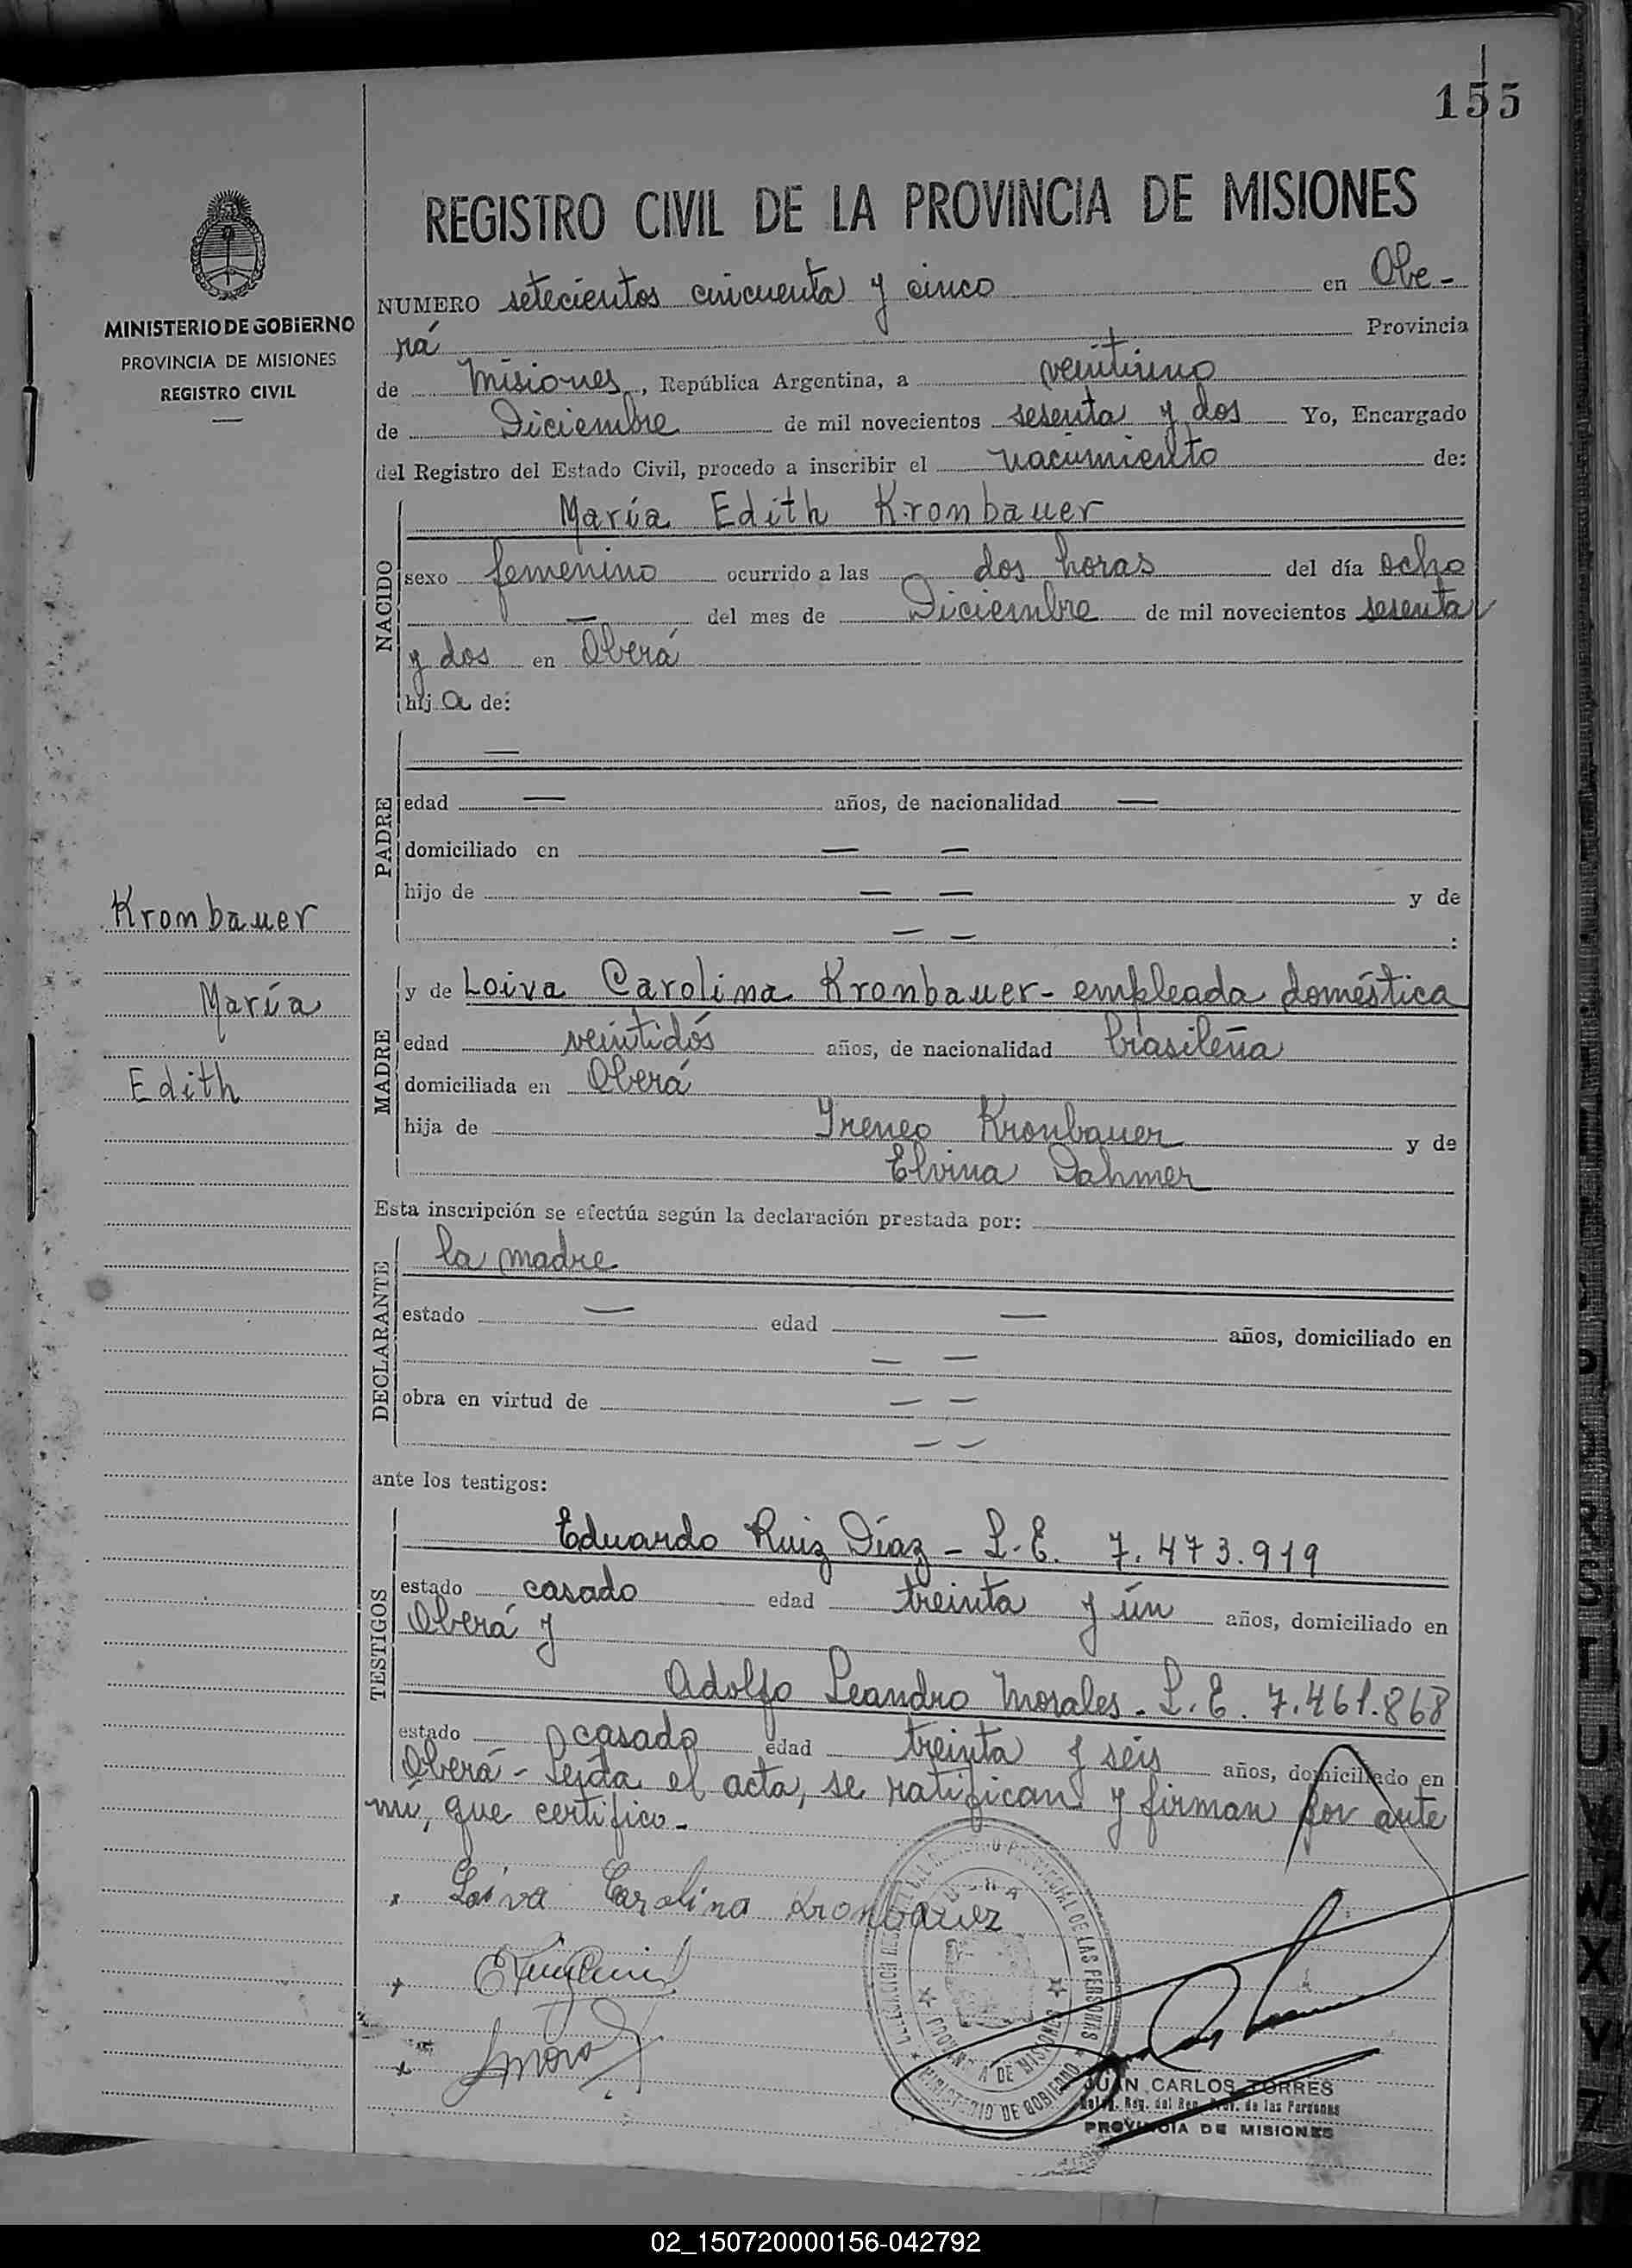 155
REGISTRO CIVIL DE LA PROVINCIA DE MISIONES
MINISTERIO DE GOBIERNO
PROVINCIA DE MISIONES
REGISTRO CIVIL
NUMERO setecientos cincuenta y cinco en Obe-
rá Provincia
de Misiones, República Argentina, a veintiuno
de Diciembre de mil novecientos sesenta y dos Yo, Encargado
del Registro del Estado Civil, procedo a inscribir el nacimiento de:
NACIDO
María Edith Kronbauer
sexo femenino ocurrido a las dos horas del día ocho
— del mes de Diciembre de mil novecientos sesenta
y dos en Oberá
hij a de:
PADRE
—
edad — años, de nacionalidad —
domiciliado en — —
hijo de — — y de
— — :
Kronbauer
María
Edith
MADRE
y de Loiva Carolina Kronbauer - empleada doméstica
edad veintidós años, de nacionalidad brasileña
domiciliada en Oberá
hija de Ireneo Kronbauer y de
Elvina Dahmer
Esta inscripción se efectúa según la declaración prestada por:
DECLARANTE
la madre
estado — edad — años, domiciliado en
— —
obra en virtud de — —
— —
ante los testigos:
TESTIGOS
Eduardo Ruiz Díaz - L.E. 7.473.919
estado casado edad treinta y ún años, domiciliado en
Oberá y
Adolfo Leandro Morales - L.E. 7.461.868
estado casado edad treinta y séis años, domiciliado en
Oberá - Leída el acta, se ratifican y firman por ante
mí, que certifico.-
x Loiva Carolina Kronbauer
x
x
MINISTERIO DE GOBIERNO
PROVINCIA DE MISIONES
JUAN CARLOS TORRES
Deleg. Reg. del Reg. Prov. de las Personas
PROVINCIA DE MISIONES
02_150720000156-042792